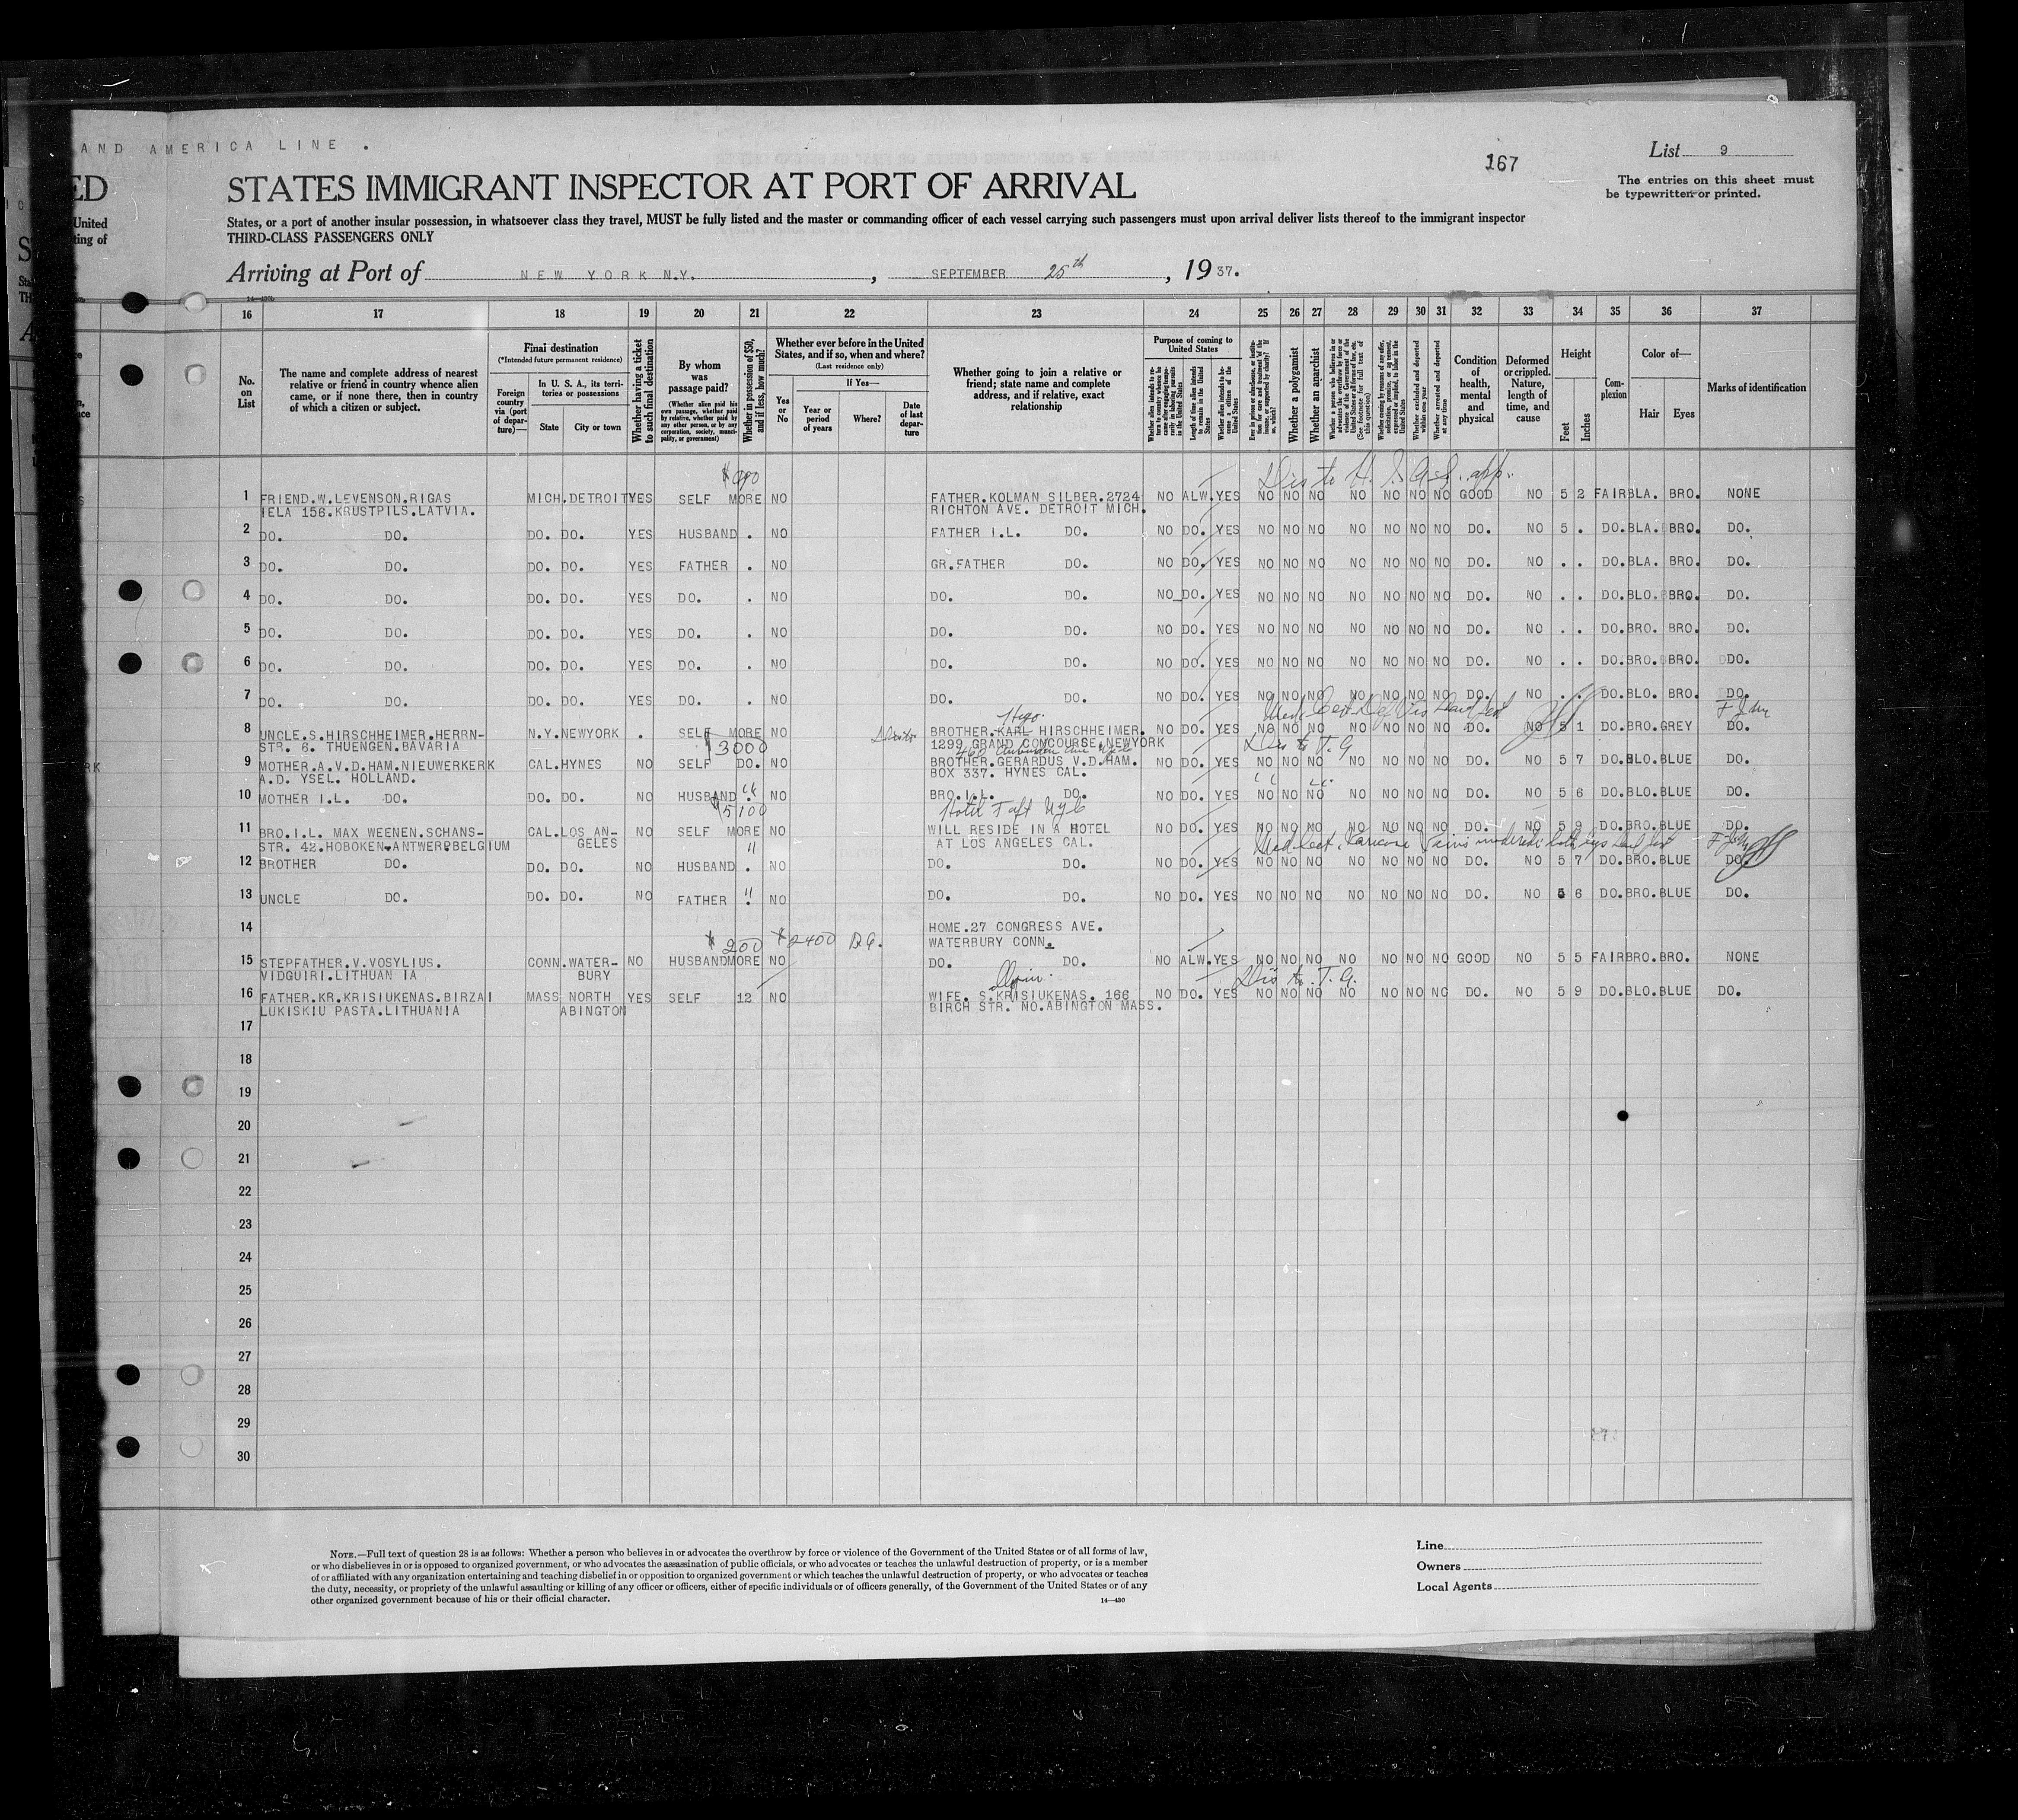 AND AMERICA LINE .
167
List 9
The entries on this sheet must
be typewritten or printed.
ED
STATES IMMIGRANT INSPECTOR AT PORT OF ARRIVAL
United
States, or a port of another insular possession, in whatsoever class they travel, MUST be fully listed and the master or commanding officer of each vessel carrying such passengers must upon arrival deliver lists thereof to the immigrant inspector
ting of
THIRD-CLASS PASSENGERS ONLY
Arriving at Port of NEW YORK N.Y. , SEPTEMBER 25th , 19 37.
16 17 18 19 20 21 22 23 24 25 26 27 28 29 30 31 32 33 34 35 36 37
No. on List
The name and complete address of nearest relative or friend in country whence alien came, or if none there, then in country of which a citizen or subject.
Final destination
(*Intended future permanent residence)
Foreign country via (port of departure)—
In U. S. A., its territories or possessions
State
City or town
Whether having a ticket to such final destination
By whom was passage paid?
(Whether alien paid his own passage, whether paid by relative, whether paid by any other person, or by any corporation, society, municipality, or government)
Whether in possession of $50, and if less, how much?
Whether ever before in the United States, and if so, when and where?
(Last residence only)
If Yes—
Yes or No
Year or period of years
Where?
Date of last departure
Whether going to join a relative or friend; state name and complete address, and if relative, exact relationship
Purpose of coming to United States
Length of time alien intends to remain in the United States
Whether alien intends to become a citizen of the United States
Whether a polygamist
Whether an anarchist
Whether excluded and deported within one year
Whether arrested and deported at any time
Condition of health, mental and physical
Deformed or crippled. Nature, length of time, and cause
Height
Feet
Inches
Complexion
Color of—
Hair
Eyes
Marks of identification
Dis to H.
1 FRIEND.W.LEVENSON.RIGAS MICH.DETROIT YES SELF MORE NO FATHER.KOLMAN SILBER.2724 NO ALW.YES NO NO NO NO NO NO NO GOOD NO 5 2 FAIR BLA. BRO. NONE
IELA 156.KRUSTPILS.LATVIA. RICHTON AVE. DETROIT MICH.
2 DO. DO. DO. DO. YES HUSBAND . NO FATHER I.L. DO. NO DO. YES NO NO NO NO NO NO NO DO. NO 5 . DO. BLA. BRO. DO.
3 DO. DO. DO. DO. YES FATHER . NO GR.FATHER DO. NO DO. YES NO NO NO NO NO NO NO DO. NO . . DO. BLA. BRO. DO.
4 DO. DO. DO. DO. YES DO. . NO DO. DO. NO DO. YES NO NO NO NO NO NO NO DO. NO . . DO. BLO. BRO. DO.
5 DO. DO. DO. DO. YES DO. . NO DO. DO. NO DO. YES NO NO NO NO NO NO NO DO. NO . . DO. BRO. BRO. DO.
6 DO. DO. DO. DO. YES DO. . NO DO. DO. NO DO. YES NO NO NO NO NO NO NO DO. NO . . DO. BRO. BRO. DO.
7 DO. DO. DO. DO. YES DO. . NO DO. DO. NO DO. YES NO NO NO NO NO NO NO DO. NO . . DO. BLO. BRO. DO.
Hugo.
8 UNCLE.S.HIRSCHHEIMER.HERRN- N.Y.NEWYORK . SELF MORE NO BROTHER.KARL HIRSCHHEIMER. NO DO. YES NO NO NO NO NO NO NO DO. NO 5 1 DO. BRO. GREY DO.
STR. 6. THUENGEN.BAVARIA 1299 GRAND CONCOURSE.NEWYORK
$3000 Dis to T.G
9 MOTHER.A.V.D.HAM.NIEUWERKERK CAL.HYNES NO SELF DO. NO BROTHER.GERARDUS V.D.HAM. NO DO. YES NO NO NO NO NO NO NO DO. NO 5 7 DO. BLO. BLUE DO.
A.D. YSEL. HOLLAND. BOX 337. HYNES CAL.
10 MOTHER I.L. DO. DO. DO. NO HUSBAND " NO BRO.I.L. DO. NO DO. YES NO NO NO NO NO NO NO DO. NO 5 6 DO. BLO. BLUE DO.
$5100 Hotel Taft NYC
11 BRO.I.L. MAX WEENEN.SCHANS- CAL.LOS AN- NO SELF MORE NO WILL RESIDE IN A HOTEL NO DO. YES NO NO NO NO NO NO NO DO. NO 5 9 DO. BRO. BLUE DO.
STR. 42.HOBOKEN.ANTWERP BELGIUM GELES AT LOS ANGELES CAL.
12 BROTHER DO. DO. DO. NO HUSBAND " NO DO. DO. NO DO. YES NO NO NO NO NO NO NO DO. NO 5 7 DO. BRO. BLUE DO.
13 UNCLE DO. DO. DO. NO FATHER " NO DO. DO. NO DO. YES NO NO NO NO NO NO NO DO. NO 5 6 DO. BRO. BLUE DO.
14 HOME.27 CONGRESS AVE.
$200 $2400 WATERBURY CONN.
15 STEPFATHER.V.VOSYLIUS. CONN.WATER- NO HUSBAND MORE NO DO. DO. NO ALW.YES NO NO NO NO NO NO NO GOOD NO 5 5 FAIR BRO. BRO. NONE
VIDGUIRI.LITHUAN IA BURY
Dis to T.G.
16 FATHER.KR.KRISIUKENAS.BIRZAI MASS NORTH YES SELF 12 NO WIFE. S.KRISIUKENAS. 166 NO DO. YES NO NO NO NO NO NO NO DO. NO 5 9 DO. BLO. BLUE DO.
LUKISKIU PASTA.LITHUANIA ABINGTON BIRCH STR. NO.ABINGTON MASS.
17
18
19
20
21
22
23
24
25
26
27
28
29
30
NOTE.—Full text of question 28 is as follows: Whether a person who believes in or advocates the overthrow by force or violence of the Government of the United States or of all forms of law,
or who disbelieves in or is opposed to organized government, or who advocates the assassination of public officials, or who advocates or teaches the unlawful destruction of property, or is a member
of or affiliated with any organization entertaining and teaching disbelief in or opposition to organized government or which teaches the unlawful destruction of property, or who advocates or teaches
the duty, necessity, or propriety of the unlawful assaulting or killing of any officer or officers, either of specific individuals or of officers generally, of the Government of the United States or of any
other organized government because of his or their official character.
14—430
Line
Owners
Local Agents